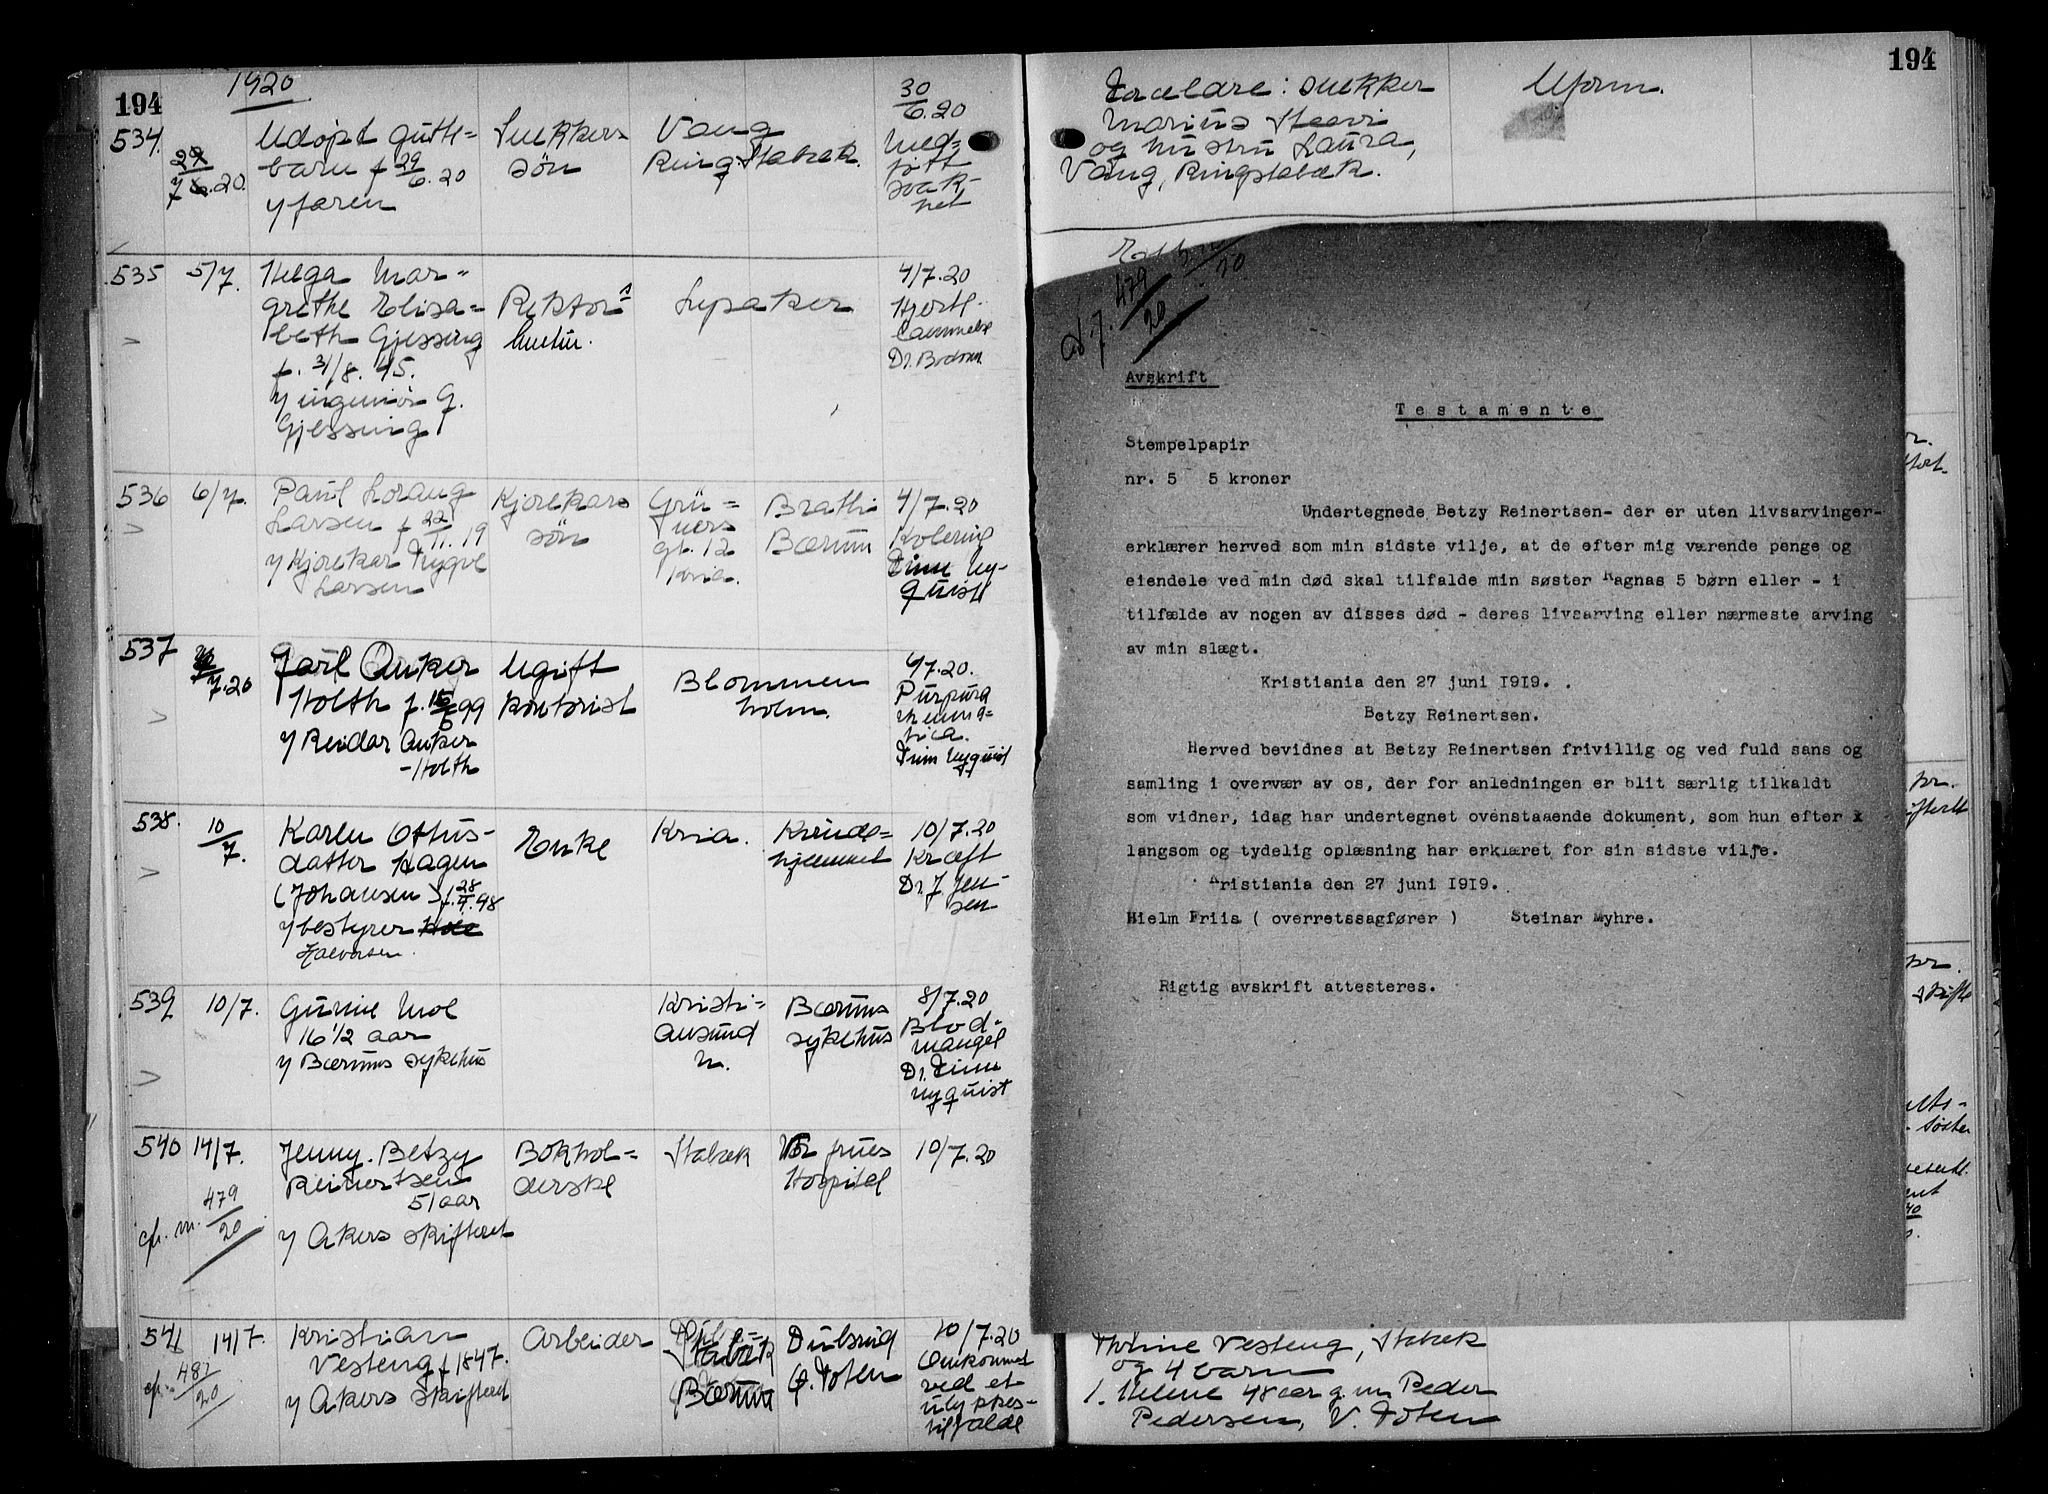 194
1920
534.
29/7 6.20.
Udøpt gutte-
barn f 29/6.20
y faren
Snekkers
søn
Vang
Ringstabæk.
30/6.20
Med-
født
svak-
het
535
5/7.
Helga Mar-
grethe Elisa-
beth Gjessing
f. 31/8. 45.
y ingeniør G.
Gjessing
Rektors
hustru.
Lysaker
4/7.20
Hjertl.
536
6/7.
Paul Lorang
Larsen f 22/11.19
y Kjørekar Trygve
Larsen
Kjørekars
søn
Grü-
ners
gt. 12
Kria.
Brathi
Bærum
4/7.20
Kolerine
Finn Ny-
quist
537
7.20
Jarl Anker
Holth f. 15/6 99
y Reidar Anker
-Holth
Ugift
kontorist
Blommen
holm.
4/7.20.
Purpura
rheuma-
tica.
Finn Nyquist
538.
10/7.
Karen Othus-
datter Hagen
(Johansen) f. 28/7.48
y bestyrer
Halvorsen.
Enke
Kria.
Kvinde-
hjemmet
10/7.20
Kræft
Dr. J Jen-
sen
539
10/7.
Gunnie Moe
16 1/2 aar
y Bærums sykehus
Kristi-
ansund
n.
Bærums
sykehus
8/7.20
Blod-
mangel
Dr. Finn
Nyquist
540
14/7.
cfr. m. 479/20
Jenny Betzy
Reinertsen
51 aar
y Akers skifteret
Bokhol-
derske
Stabæk
Vor frues
Hospital
10/7.20
541
14/7.
cfr. 487/20
Kristian
Vesteng f 1847.
y Akers skifteret
Arbeider
Stabæk
Bærum
Dulsrud
Ø. Toten
10/7.20
Omkommet
ved et
ulykkes-
tilfælde
194
Forældre: snekker
Marius
og hustru Laura,
Vang, Ringstabæk.
Uform.
ad J. 479/20
Avskrift
Testamente
Stempelpapir
nr. 5 5 kroner
Undertegnede Betzy Reinertsen- der er uten livsarvinger-
erklærer herved som min sidste vilje, at de efter mig værende penge og
eiendele ved min død skal tilfalde min søster Ragnas 5 børn eller - i
tilfælde av nogen av disses død - deres livsarving eller nærmeste arving
av min slægt.
Kristiania den 27 juni 1919. .
Betzy Reinertsen.
Herved bevidnes at Betzy Reinertsen frivillig og ved fuld sans og
samling i overvær av os, der for anledningen er blit særlig tilkaldt
som vidner, idag har undertegnet ovenstaaende dokument, som hun efter x
langsom og tydelig oplæsning har erklæret for sin sidste vilje.
Kristiania den 27 juni 1919.
Hielm Friis ( overretssagfører ) Steinar Myhre.
Rigtig avskrift attesteres.
Vesteng, Stabæk
og 4 barn
1. Helene 48 aar g. m. Peder
Pedersen, V. Toten